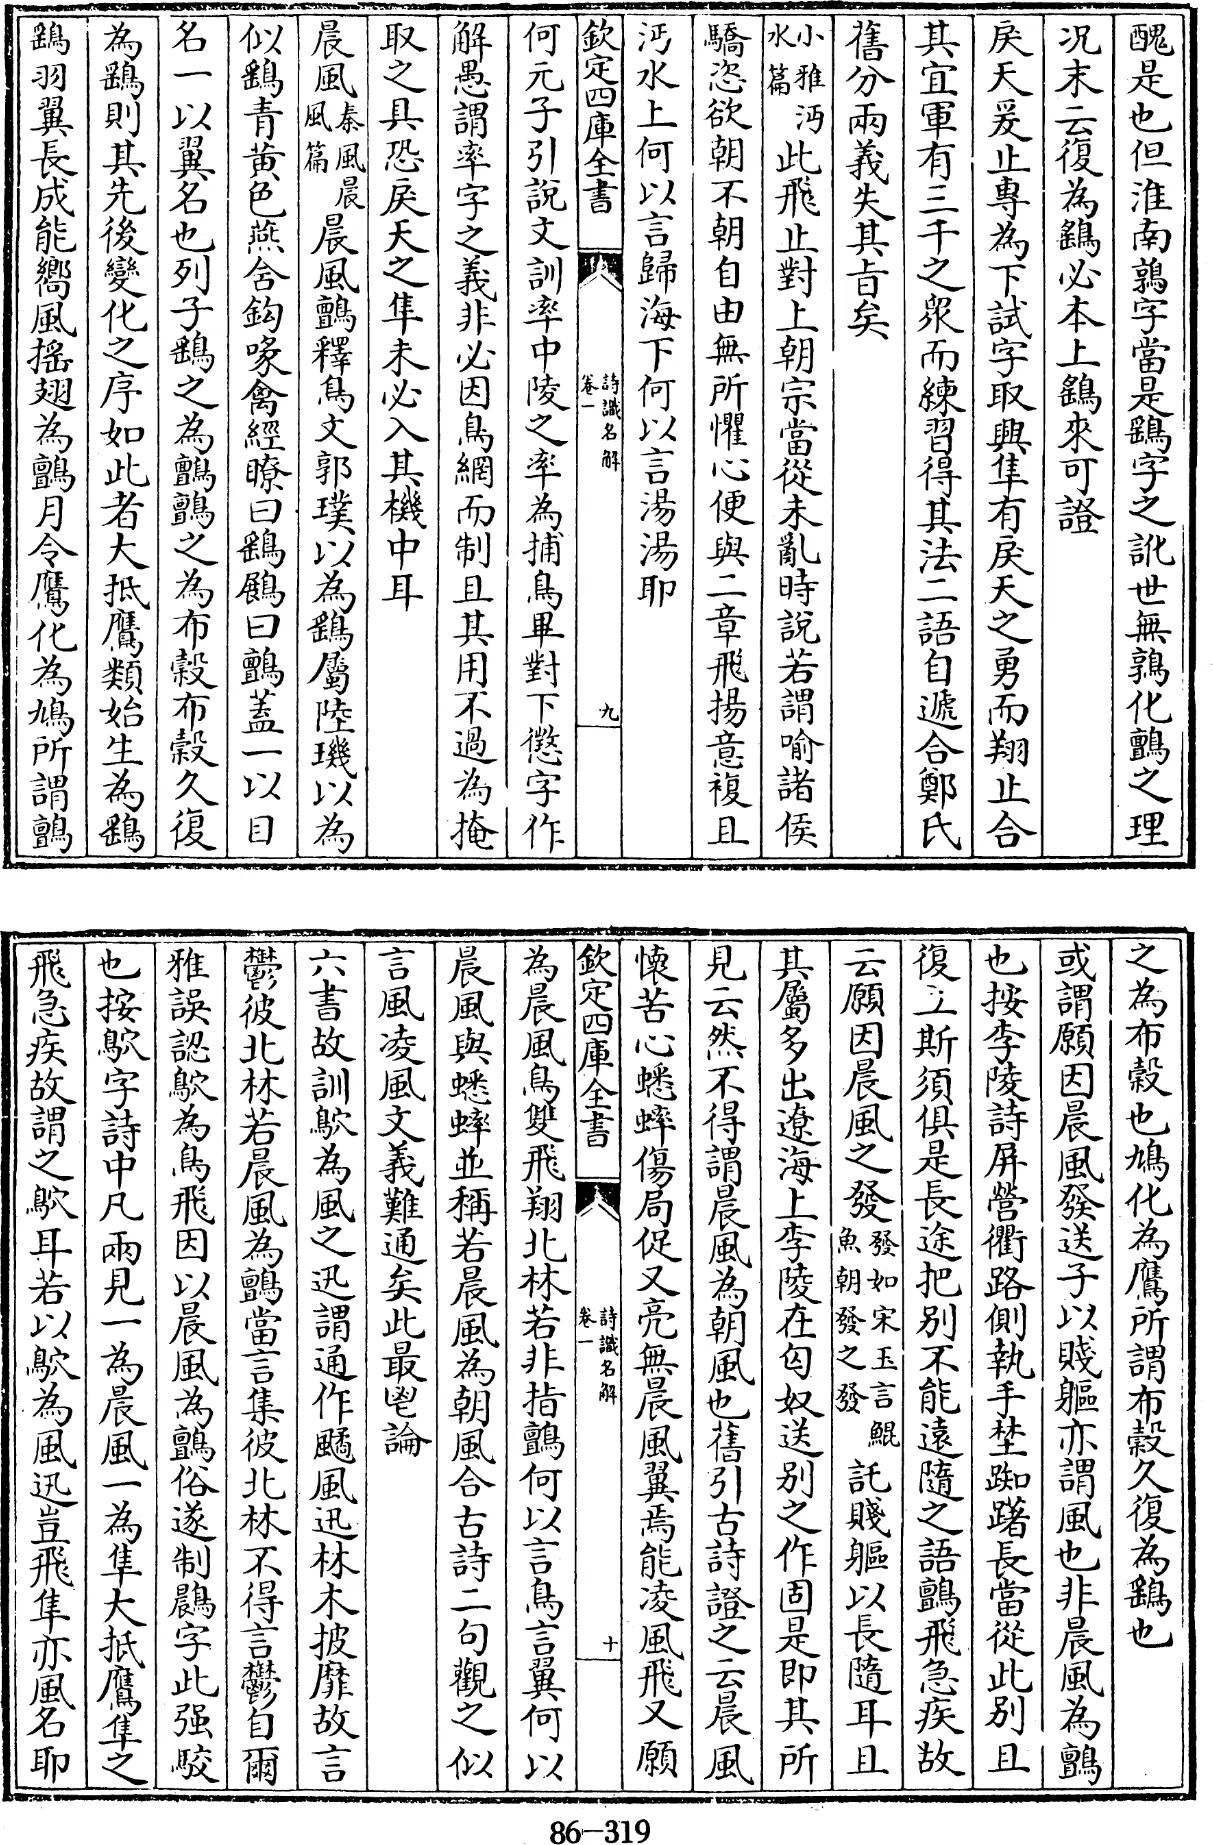 醜是也但淮南鶉字當是鷂字之訛世無鶉化鸇之理
况末云復為鷂必本上鷂來可證
戾天爰止專為下試字取興隼有戾天之勇而翔止合
其宜軍有三千之衆而練習得其法二語自遞合鄭氏
舊分兩義失其旨矣
小雅沔水篇 此飛止對上朝宗當從未亂時說若謂喻諸侯
驕恣欲朝不朝自由無所懼心便與二章飛揚意複且
沔水上何以言歸海下何以言湯湯耶
欽定四庫全書 詩識名解 卷一 九
何元子引說文訓率中陵之率為捕鳥畢對下懲字作
解愚謂率字之義非必因鳥網而制且其用不過為掩
取之具恐戾天之隼未必入其機中耳
晨風 秦風晨風篇 晨風鸇釋鳥文郭璞以為鷂屬陸璣以為
似鷂青黄色燕含鈎喙禽經瞭曰鷂鷐曰鸇蓋一以目
名一以翼名也列子鷂之為鸇鸇之為布穀布穀久復
為鷂則其先後變化之序如此者大抵鷹類始生為鷂
鷂羽翼長成能嚮風搖翅為鸇月令鷹化為鳩所謂鸇
之為布穀也鳩化為鷹所謂布穀久復為鷂也
或謂願因晨風發送子以賤軀亦謂風也非晨風為鸇
也按李陵詩屏營衢路側執手埜踟躇長當從此別且
復立斯須俱是長途把别不能遠隨之語鸇飛急疾故
云願因晨風之發 發如宋玉言鯤魚朝發之發 託賤軀以長隨耳且
其屬多出遼海上李陵在匈奴送别之作固是即其所
見云然不得謂晨風為朝風也舊引古詩證之云晨風
懷苦心蟋蟀傷局促又亮無晨風翼焉能凌風飛又願
欽定四庫全書 詩識名解 卷一 十
為晨風鳥雙飛翔北林若非指鸇何以言鳥言翼何以
晨風與蟋蟀並稱若晨風為朝風合古詩二句觀之似
言風凌風文義難通矣此最鬯論
六書故訓鴥為風之迅謂通作䬍風迅林木披靡故言
鬱彼北林若晨風為鸇當言集彼北林不得言鬱自爾
雅誤認鴥為鳥飛因以晨風為鸇俗遂制鷐字此强駁
也按鴥字詩中凡兩見一為晨風一為隼大抵鷹隼之
飛急疾故謂之鴥耳若以鴥為風迅豈飛隼亦風名耶
86-319